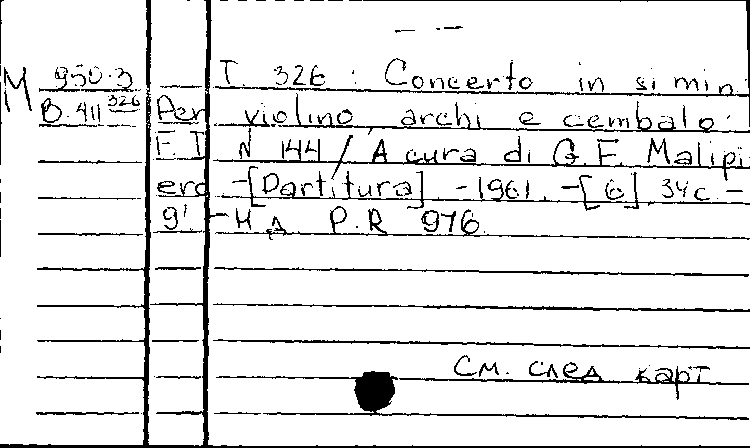 — · —
М 950·3 T. 326 : Concerto in si min
В·411 326 Per violino, archi e cembalo:
F. I N 144 / A cura di G. F. Malipi
ero -[Partitura] -1961. -[6] 34c. -
9'. -H. A. P. R 976.
См. след карт